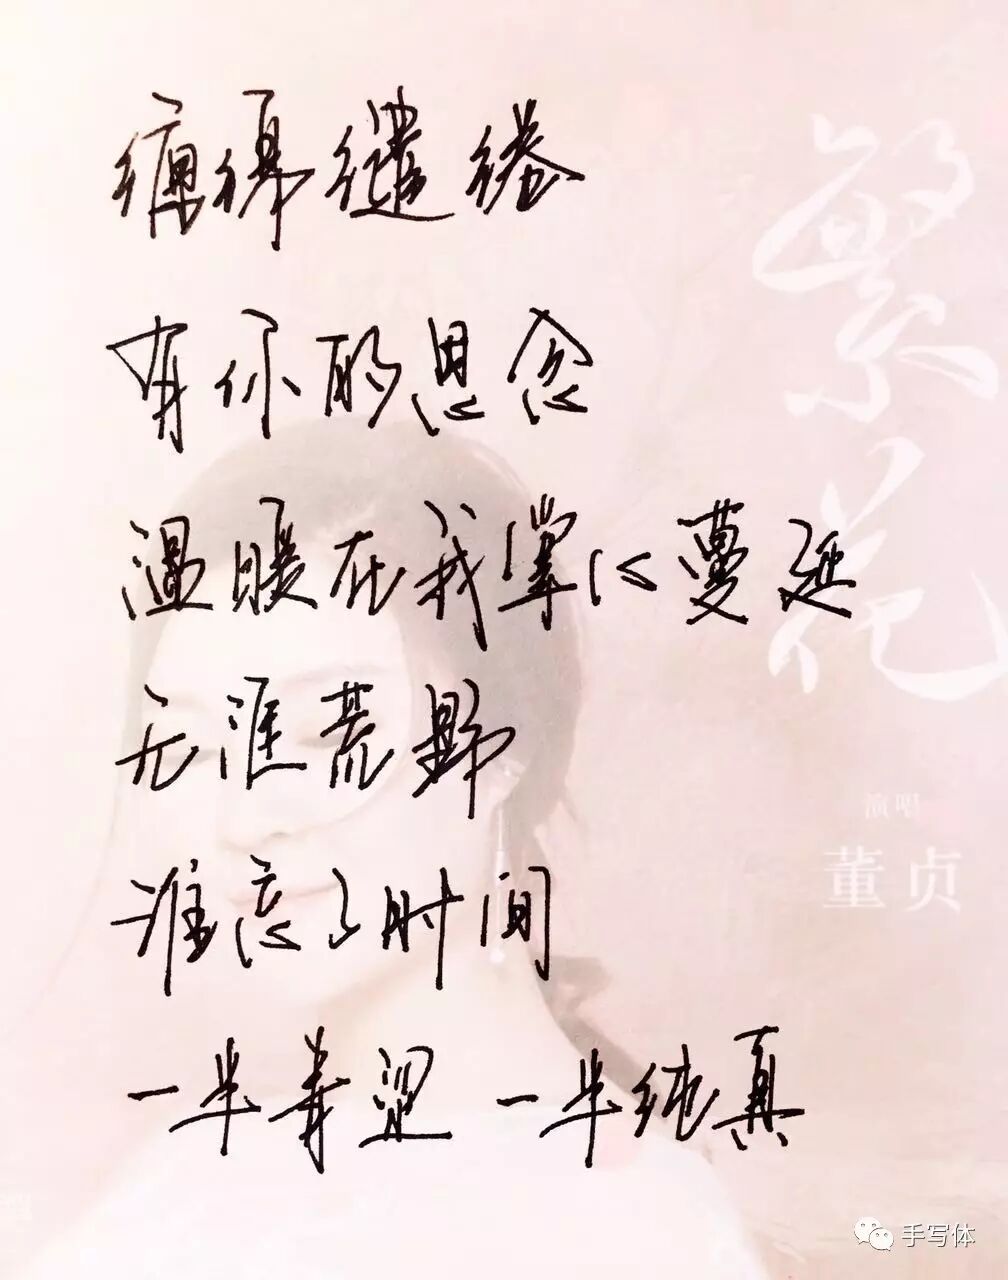 缠绵缱绻
有你的思念
温暖在我掌心蔓延
无涯荒野
谁忘了时间
一半青涩 一半纯真
繁花
演唱
董贞
手写体